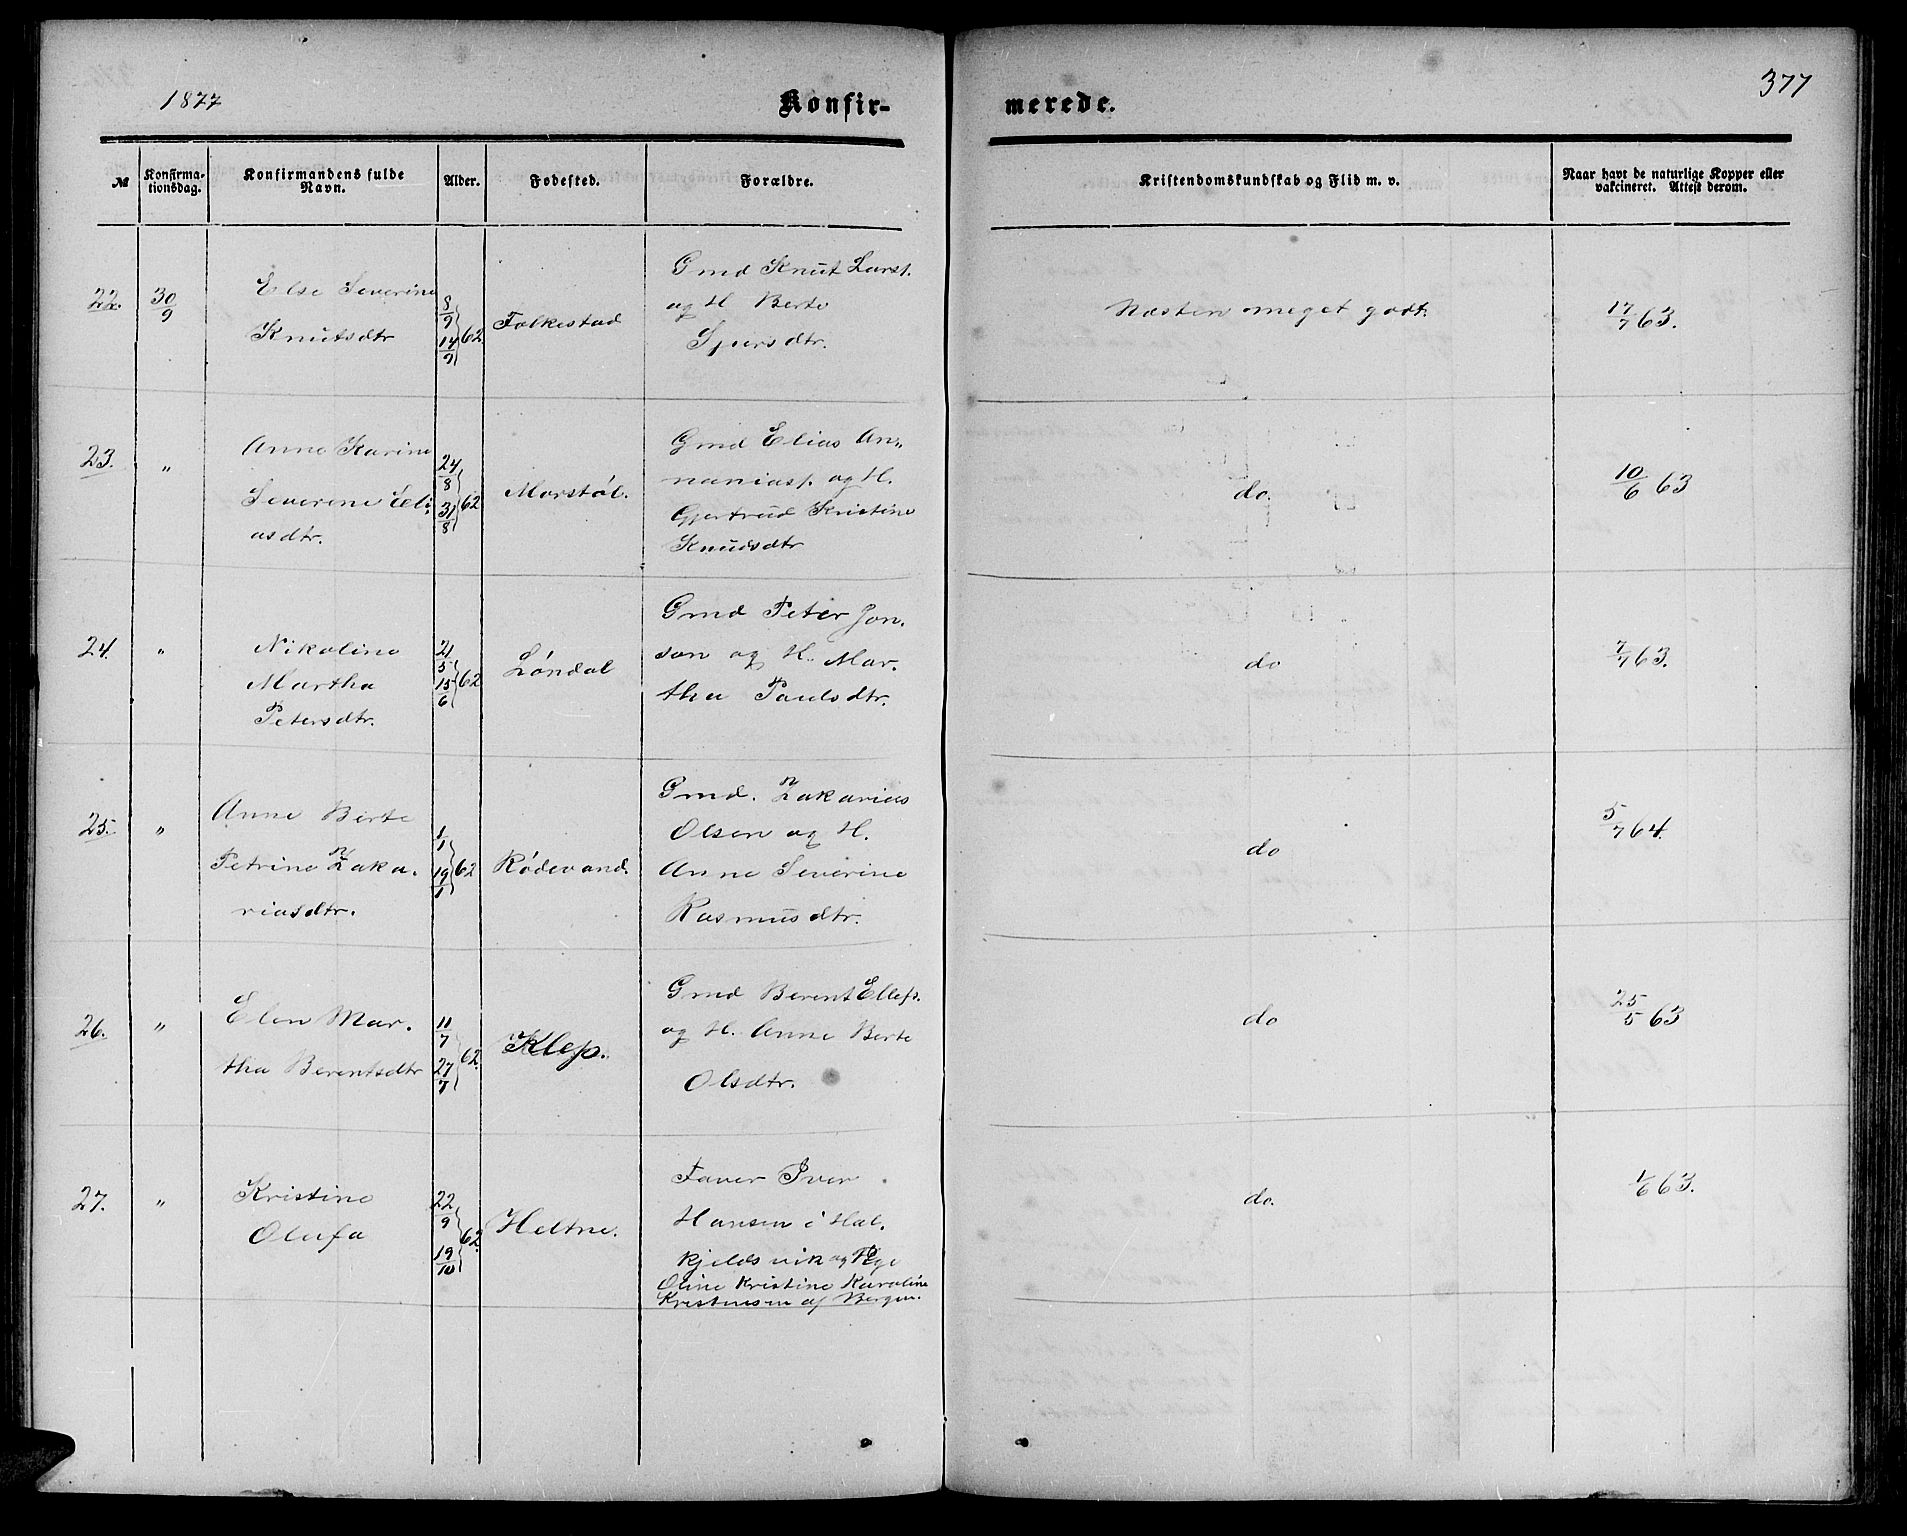 1877
Konfir-
merede.
377
№
Konfirma-
tionsdag.
Konfirmandens fulde
Navn.
Alder.
Fødested.
Forældre.
Kristendomskundskab og Flid m. v.
Naar havt de naturlige Kopper eller
vakcineret. Attest derom.
22. 30/9
Else Severine
Knutsdtr
8/9 14/9 62
Folkestad
Gmd Knut Larss.
og H. Berte
Sjursdtr.
Næsten meget godt.
17/7 63.
23. "
Anne Karine
Severine Eli-
asdtr.
24/8 31/8 62
Morstøl.
Gmd Elias An„
naniass. og H.
Gjertrud Kristine
Knudsdtr
do.
10/6 63
24. "
Nikoline
Martha
Petersdtr.
21/5 15/6 62
Løndal
Gmd Peter Jon.
son og H. Mar.
tha Paulsdtr.
do
7/7 63.
25. "
Anne Berte
Petrine Zaka.
riasdtr.
1/1 19/1 62
Rødevand.
Gmd. Zakarias
Olsen og H.
Anne Severine
Rasmusdtr.
do
5/7 64.
26. "
Elen Mar.
tha Berentsdtr
11/7 27/7 62.
Klep.
Gmd Berent Ellefs.
og H. Anne Berte
Olsdtr.
do
25/5 63
27. "
Kristine
Olufa
22/9 19/10 62.
Heltne.
Faver Iver
Hansen i Hal.
kjeldsvik og Pige
Oline Kristine Karoline
Kristensen af Bergen.
do.
1/6 63.